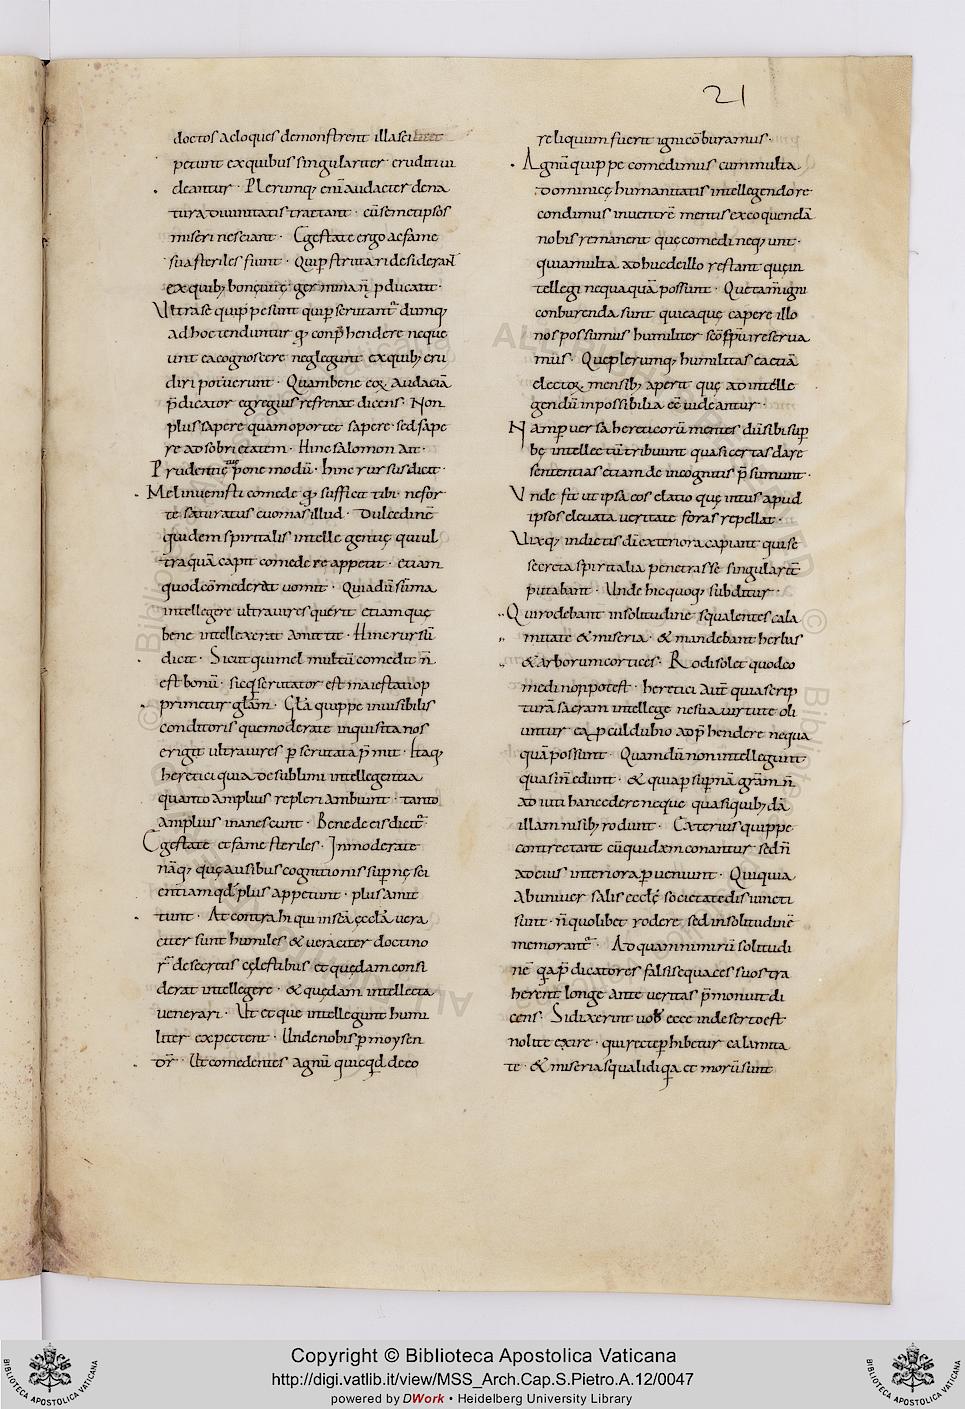 21
doctos ad oques demonstrent illa sci
petunt ex quibus singulariter eruditi vi
deantur · Plerumq; eni audacter de na
tura divinitatis tractant · cu semetipsos
miseri nesciant · Egestate ergo ac fame
steriles fiunt · Qui perscrutari desiderant
ex quib; bonę vitę germina n̄ producant ·
Ultra se quippe sunt qui perscrutant̄ dumq;
ad hoc tenduntur qd̄ conp̄hendere neque
unt ea cognoscere neglegunt ex quib; eru
diri potuerunt · Quam bene eoꝝ audaciā
p̄dicator egregius refrenat dicens · Non
plus sapere quam oportet sapere · sed sape
re ad sobrietatem · Hinc salomon ait ·
Prudentię tuę pone modū · hinc rursus dicit ·
Mel invenisti comede qd̄ sufficit tibi · ne for
te saturatus evomas illud · Dulcedinē
quidem spiritalis intellegentię qui ul
tra quā capit comedere appetit · etiam
quod comederat vomit · Quia dū summa
intellegere ultra vires querit etiam quę
bene intellexerat amittit · Hinc rursū
dicit · Sicut qui mel multū comedit n̄
est bonū · sic qui scrutator est maiestati op
primetur a gloria · Gloria quippe invisibilis
conditoris que moderate inquisita nos
erigit ultra vires perscrutata p̄mit · Itaq;
heretici quia de sublimi intellegentia
quanto amplius repleri ambiunt · tanto
amplius inanescunt · Bene de eis dicit̄ ·
Egestate et fame steriles · Inmoderate
nāq; quę ausibus cognitionis supernę sci
entiam qd̄ plus appetunt · plus amit
tunt · At contra hi qui in sc̄a ęccla vera
citer sunt humiles & veraciter doctino
r̄ de secretis cęlestibus et quędam consi
derat intellegere · & quędam intellecta
venerari · Ut et que intellegunt humi
liter expectent · Unde nobis per moysen
Ut comedentes agnū quicqd̄ de eo
reliquum fuerit igni cōburamus ·
Agnū quippe comedimus cum multa
dominicę humanitatis intellegendo re
condimus in ventrē mentis ex eo quędā
nobis remanent quę comedi neq;unt ·
quia multa adhuc de illo restant quę in
tellegi nequaquā possunt · Quę tamē igni
conburenda sunt quia ea quę capere illo
nos possumus humiliter sc̄o sp̄ui reserva
mus · Quę plerumq; humilitas ea etiā
electoꝝ mensib; aperit quę ad intelle
gendū inpossibilia ee videantur ·
Nam perversa hereticorū mentes dū sibi sup
bę intellectū tribuunt quasi certas dare
sententias etiam de incognitis p̄sumunt ·
Unde fit ut ipsa eos elatio quę intus apud
ipsos elevata veritate foras repellat ·
Vixq; in dictis dī exteriora capiant qui se
secreta spiritalia penetrasse singulariter
putabant · Unde hic quoq; subditur ·
Qui rodebant in solitudine squalentes cala
mitate & miseria · & mandebant herbas
& arborum cortices · Rodi solet quod co
medi non potest · heretici autē quia scrip
turā sacram intellege ne sua virtute oli
untur ea p̄cul dubio adp̄hendere nequa
quā possunt · Quam dū non intellegunt
quasi n̄ edunt · & quia per supernā gr̄am n̄
adiuti hanc edere neque quasi quib;dā
illam nisib; rodunt · Exterius quippe
contrectant cū quidam conantur sed n̄
ad eius interiora perveniunt · Qui quia
ab universalis ecclę societate disiuncti
sunt · n̄ quolibet rodere sed in solitudinē
memorant̄ · Ad quam nimirū solitudi
nē qā p̄dicatores falsi sequaces suos tra
herent longe ante veritas p̄monuit di
cens · Si dixerint vobis ecce in deserto est
nolite exire · qui recte perhibetur calamita
te · & miseria squalidi qā et morū sunt
Copyright © Biblioteca Apostolica Vaticana
http://digi.vatlib.it/view/MSS_Arch.Cap.S.Pietro.A.12/0047
powered by DWork • Heidelberg University Library